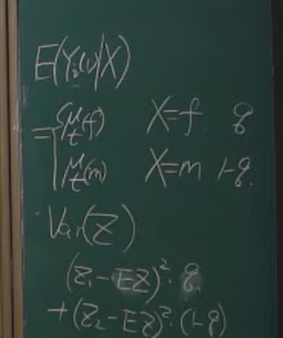 E(Yᵢ(u)|X)
= { μₜ(f) X=f q
μₜ(m) X=m 1-q.
Var(Z)
(Z₁-EZ)²·q
+(Z₂-EZ)²·(1-q)